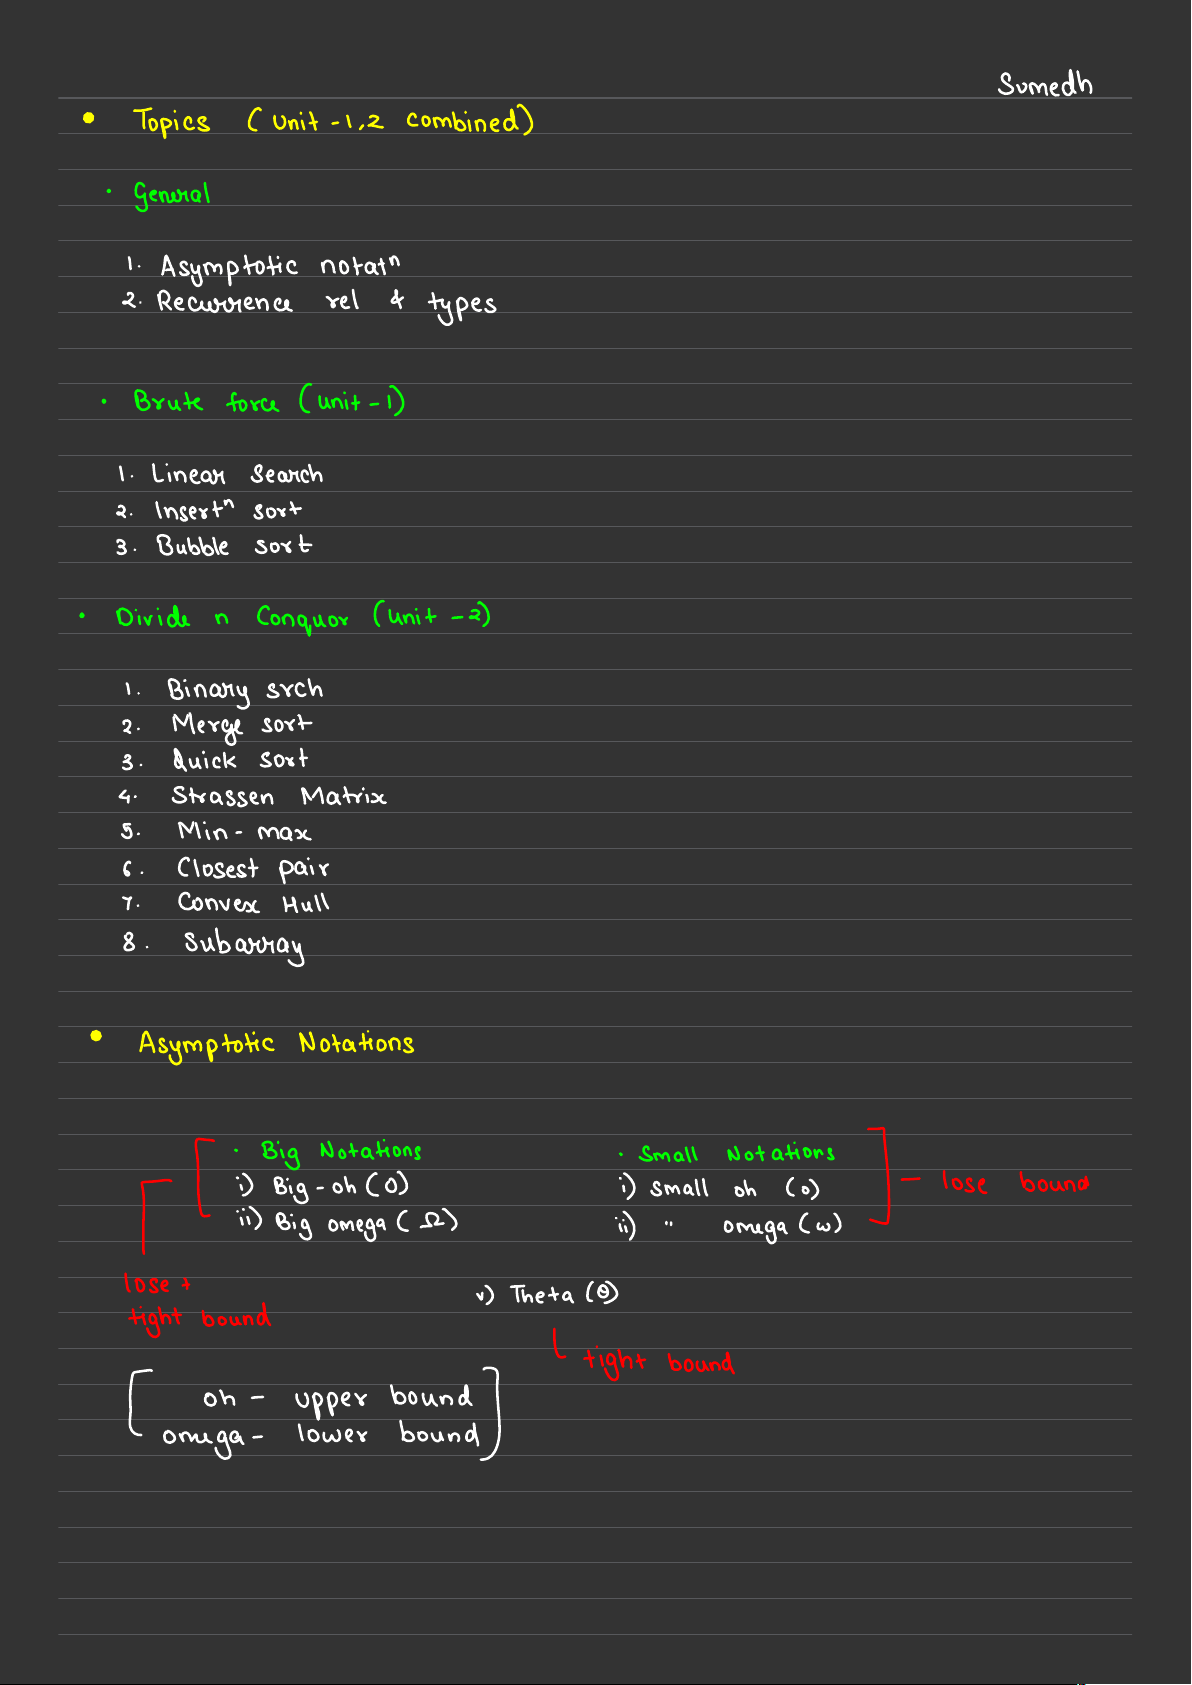 Sumedh
• Topics (Unit-1,2 combined)
• General
1. Asymptotic notatⁿ
2. Recurrence rel & types
• Brute force (Unit-1)
1. Linear Search
2. Insertⁿ sort
3. Bubble sort
• Divide n Conquor (Unit-2)
1. Binary srch
2. Merge sort
3. Quick sort
4. Strassen Matrix
5. Min-max
6. Closest pair
7. Convex Hull
8. Subarray
• Asymptotic Notations
• Big Notations • Small Notations
i) Big-oh (O) i) Small oh (o) - lose bound
ii) Big omega (Ω) ii) " omega (ω)
lose + v) Theta (Θ)
tight bound
tight bound
oh - upper bound
omega - lower bound